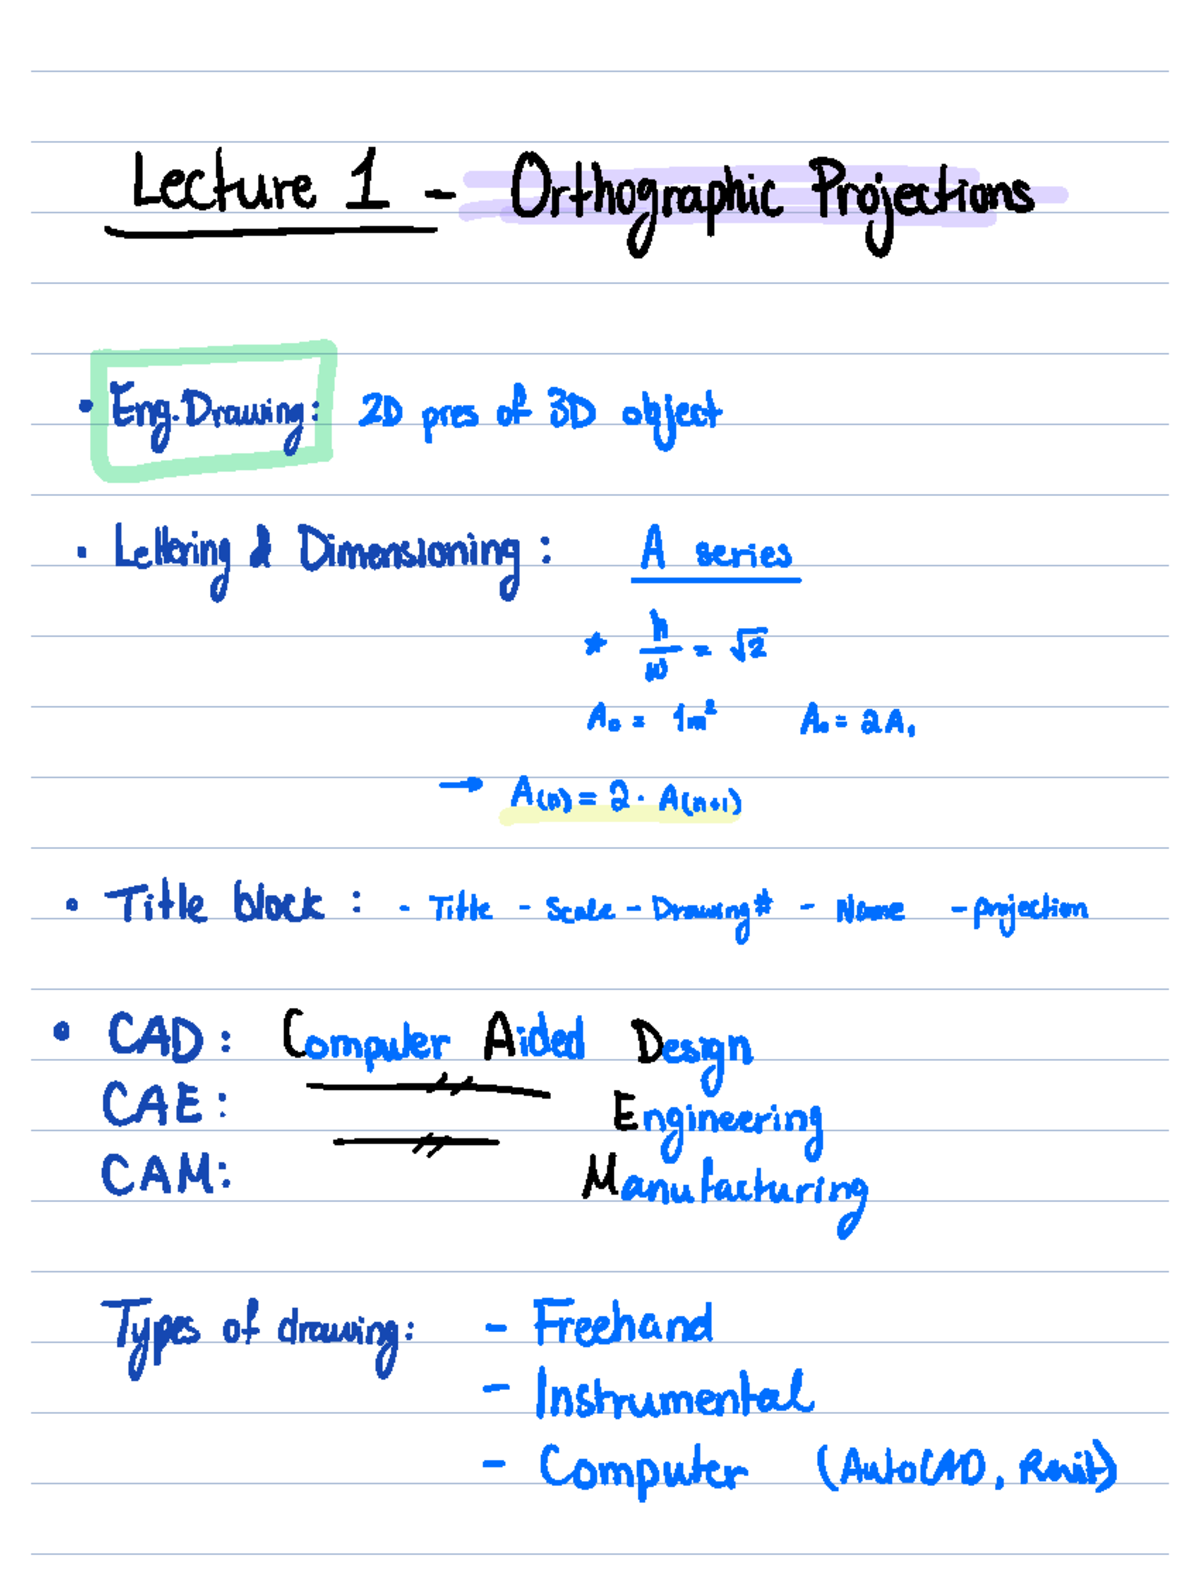 Lecture 1 - Orthographic Projections
• Eng. Drawing: 2D pres of 3D object
• Lettering & Dimensioning: A series
* h/w = √2
A₀ = 1m² A₀ = 2A₁
→ A(n) = 2 · A(n+1)
• Title block: - Title - Scale - Drawing# - Name - projection
• CAD: Computer Aided Design
CAE: —//— Engineering
CAM: —//— Manufacturing
Types of drawing: - Freehand
- Instrumental
- Computer (AutoCAD, Revit)